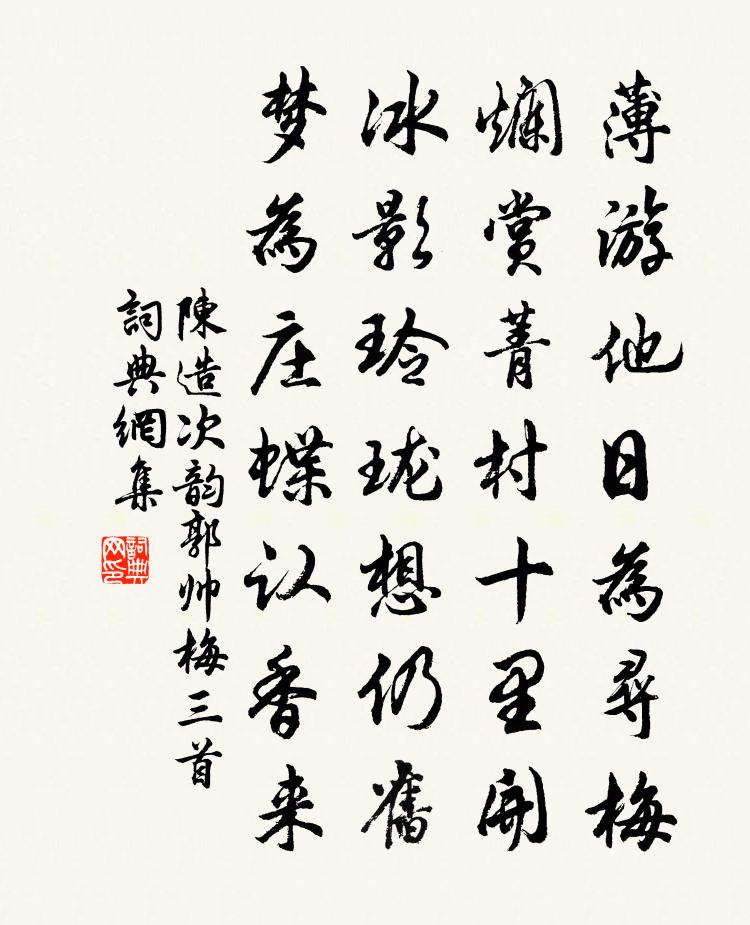 薄游他日为尋梅
爛赏菁村十里開
冰影玲珑想仍舊
梦為庄蝶认香来
陳造次韵郭帅梅三首
詞典網集
詞典网印